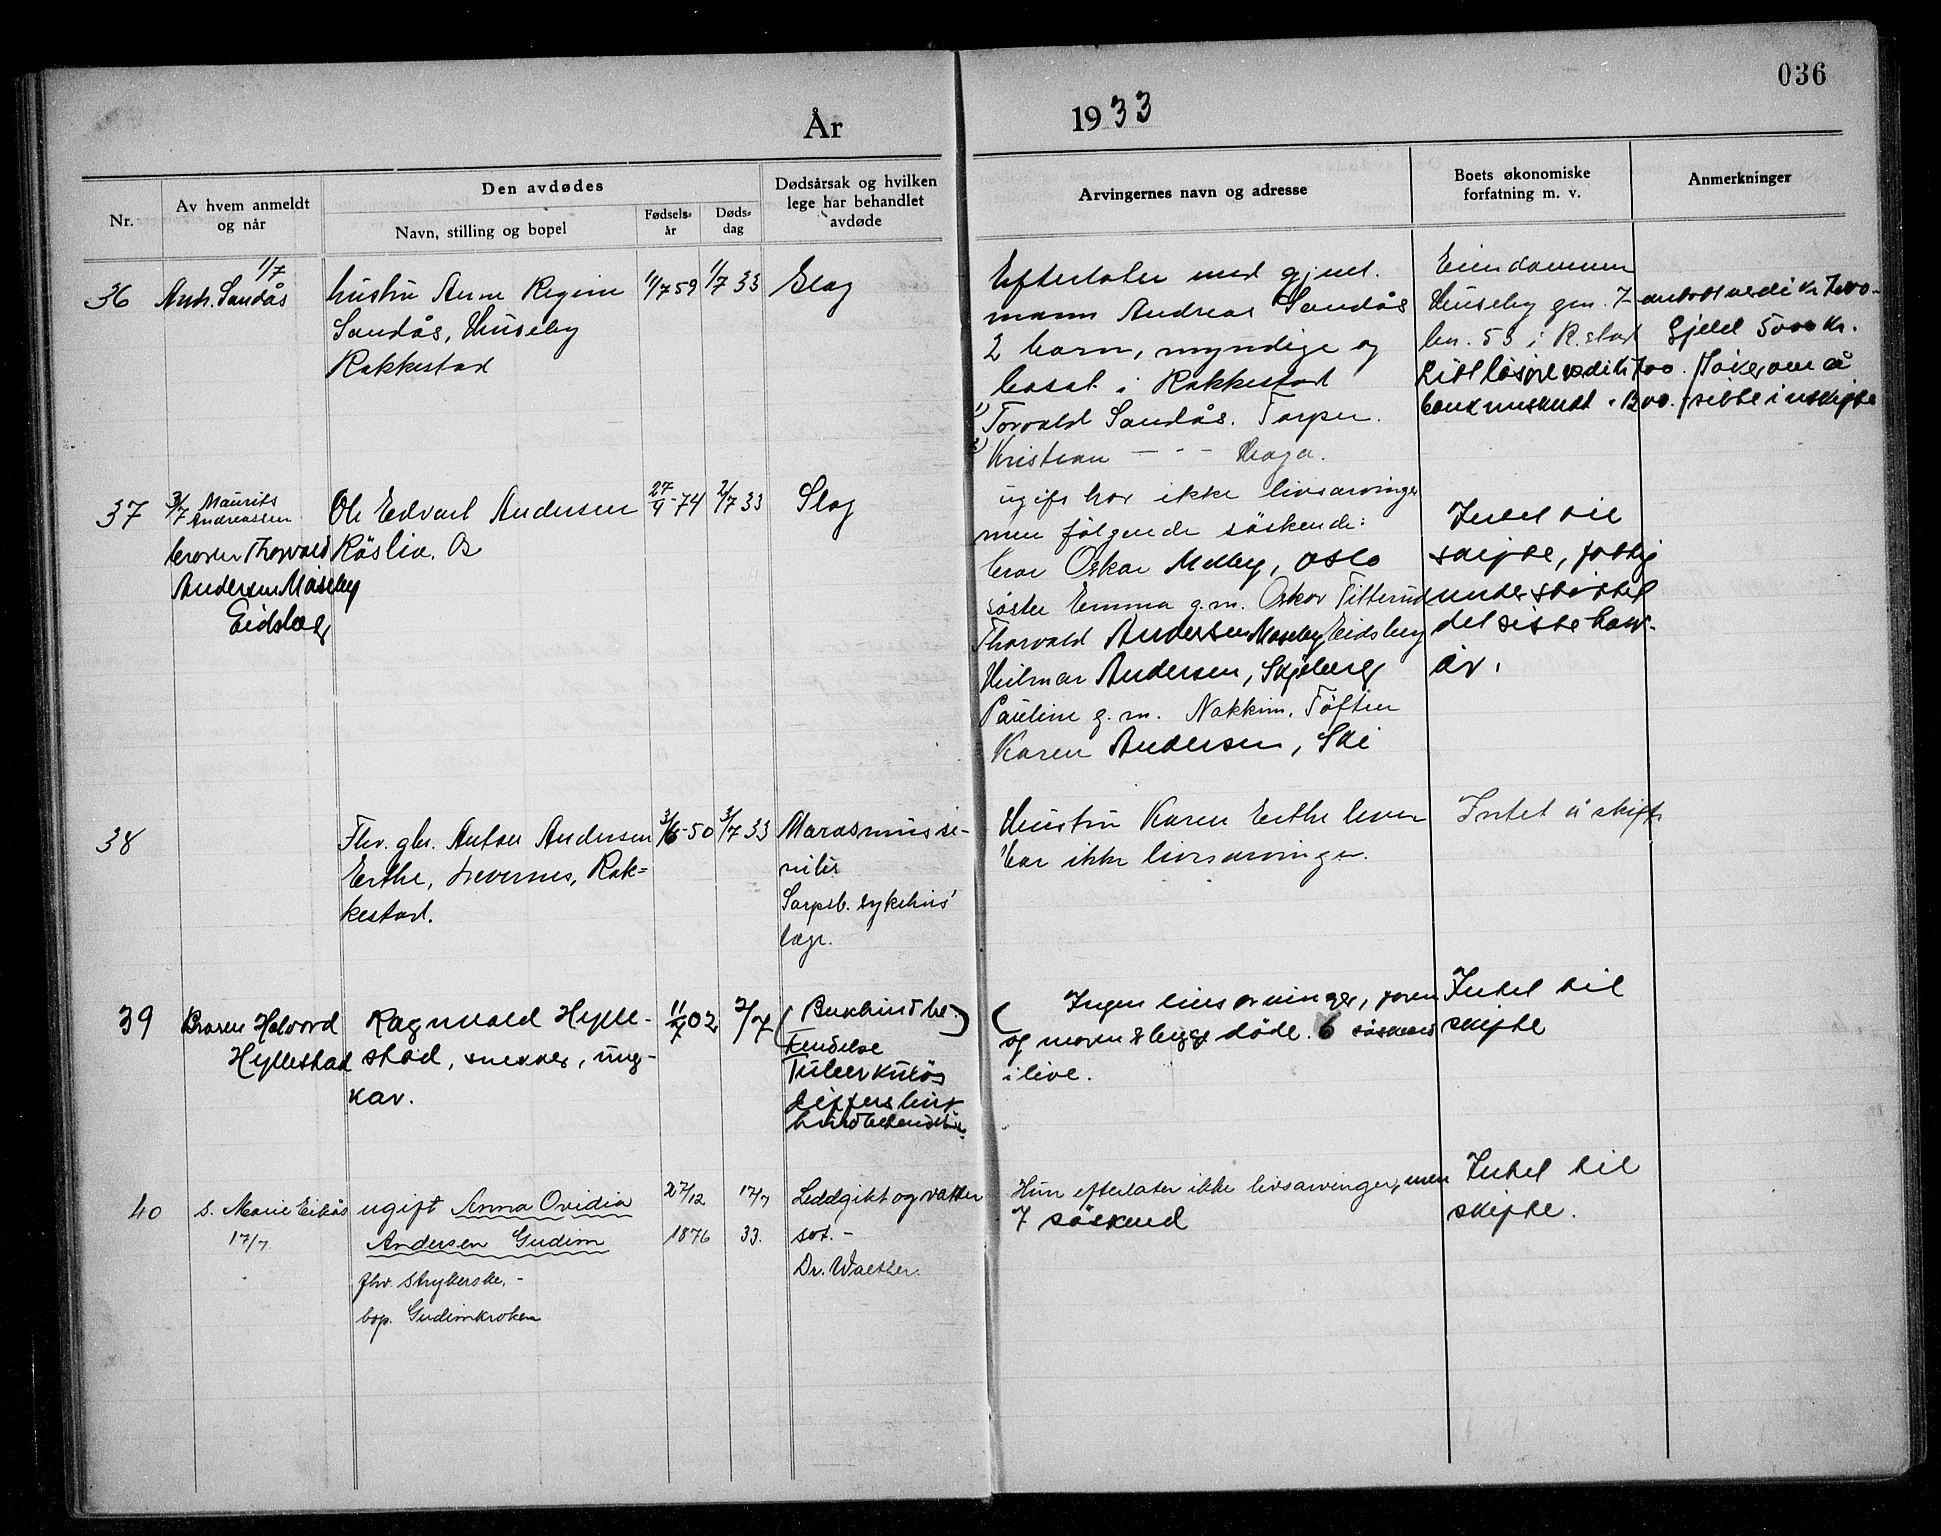 036
År 1933
Nr.
Av hvem anmeldt
og når
Den avdødes
Navn, stilling og bopel
Fødsels-
år
Døds-
dag
Dødsårsak og hvilken
lege har behandlet
avdøde
Arvingernes navn og adresse
Boets økonomiske
forfatning m. v.
Anmerkninger
36
1/7
Andr. Sandås
hustru Anne Regine
Sandås, Huseby
Rakkestad
11/7 59
1/7 33
Slag
Efterlater med gjenl.
mann Andreas Sandås
2 barn, myndige og
bosat i Rakkestad
1) Torvald Sandås. Torper.
2) Kristian — " — Haga.
Eiendommen
Huseby gnr. 7
bnr. 53 i R.stad
Litt løsøre verdi kr
bankinnskudd
antatt verdi kr
Gjeld 5000 kr.
søker om å
sitte i uskifte
37
3/7 Maurits
Andreassen
broren Thorvald
Andersen Moseby
Eidsberg
Ole Edvart Andersen
Røsliv. Os
27/9-74
2/7 33
Slag
ugift har ikke livsarvinger
men følgende söskende:
bror Oskar Melby, Oslo
söster Emma g.m. Oskar Titterud
Thorvald Andersen Moseby Eidsberg
Hilmar Andersen, Skjeberg
Pauline g. m. Nakkim, Töfter
Karen Andersen, Ski
Intet til
skifte, fattig
understøttet
det siste halv-
år.
38
Fhv. gbr. Anton Andersen
Erthe, Levernes, Rak=
kestad.
3/6-50
3/7 33
Marasmus se-
nilis
Sarpsb. sykehus'
læge.
Hustru Karen Erthe lever
har ikke livsarvinger.
Intet å skifte
39
Broren Halvord
Hyllestad
Ragnvald Hylle-
stad, snekker, ung-
kar.
02
7/7
(Bukhindebe-)
tendelse
Tuberkuløs
( Ingen livsarvinger, faren
og moren begge døde. 6 søskend
i live.
Intet til
skifte
40
s. Marie Eikås
17/7.
ugift Anna Ovidia
Andersen Gudim
fhv. strykerske, -
bop. Gudimkroken
27/12
1876
17/7
33.
Leddgikt og vatter
sot. -
Dr. Walther.
Hun efterlater ikke livsarvinger, men
7 søskend
Intet til
skifte.